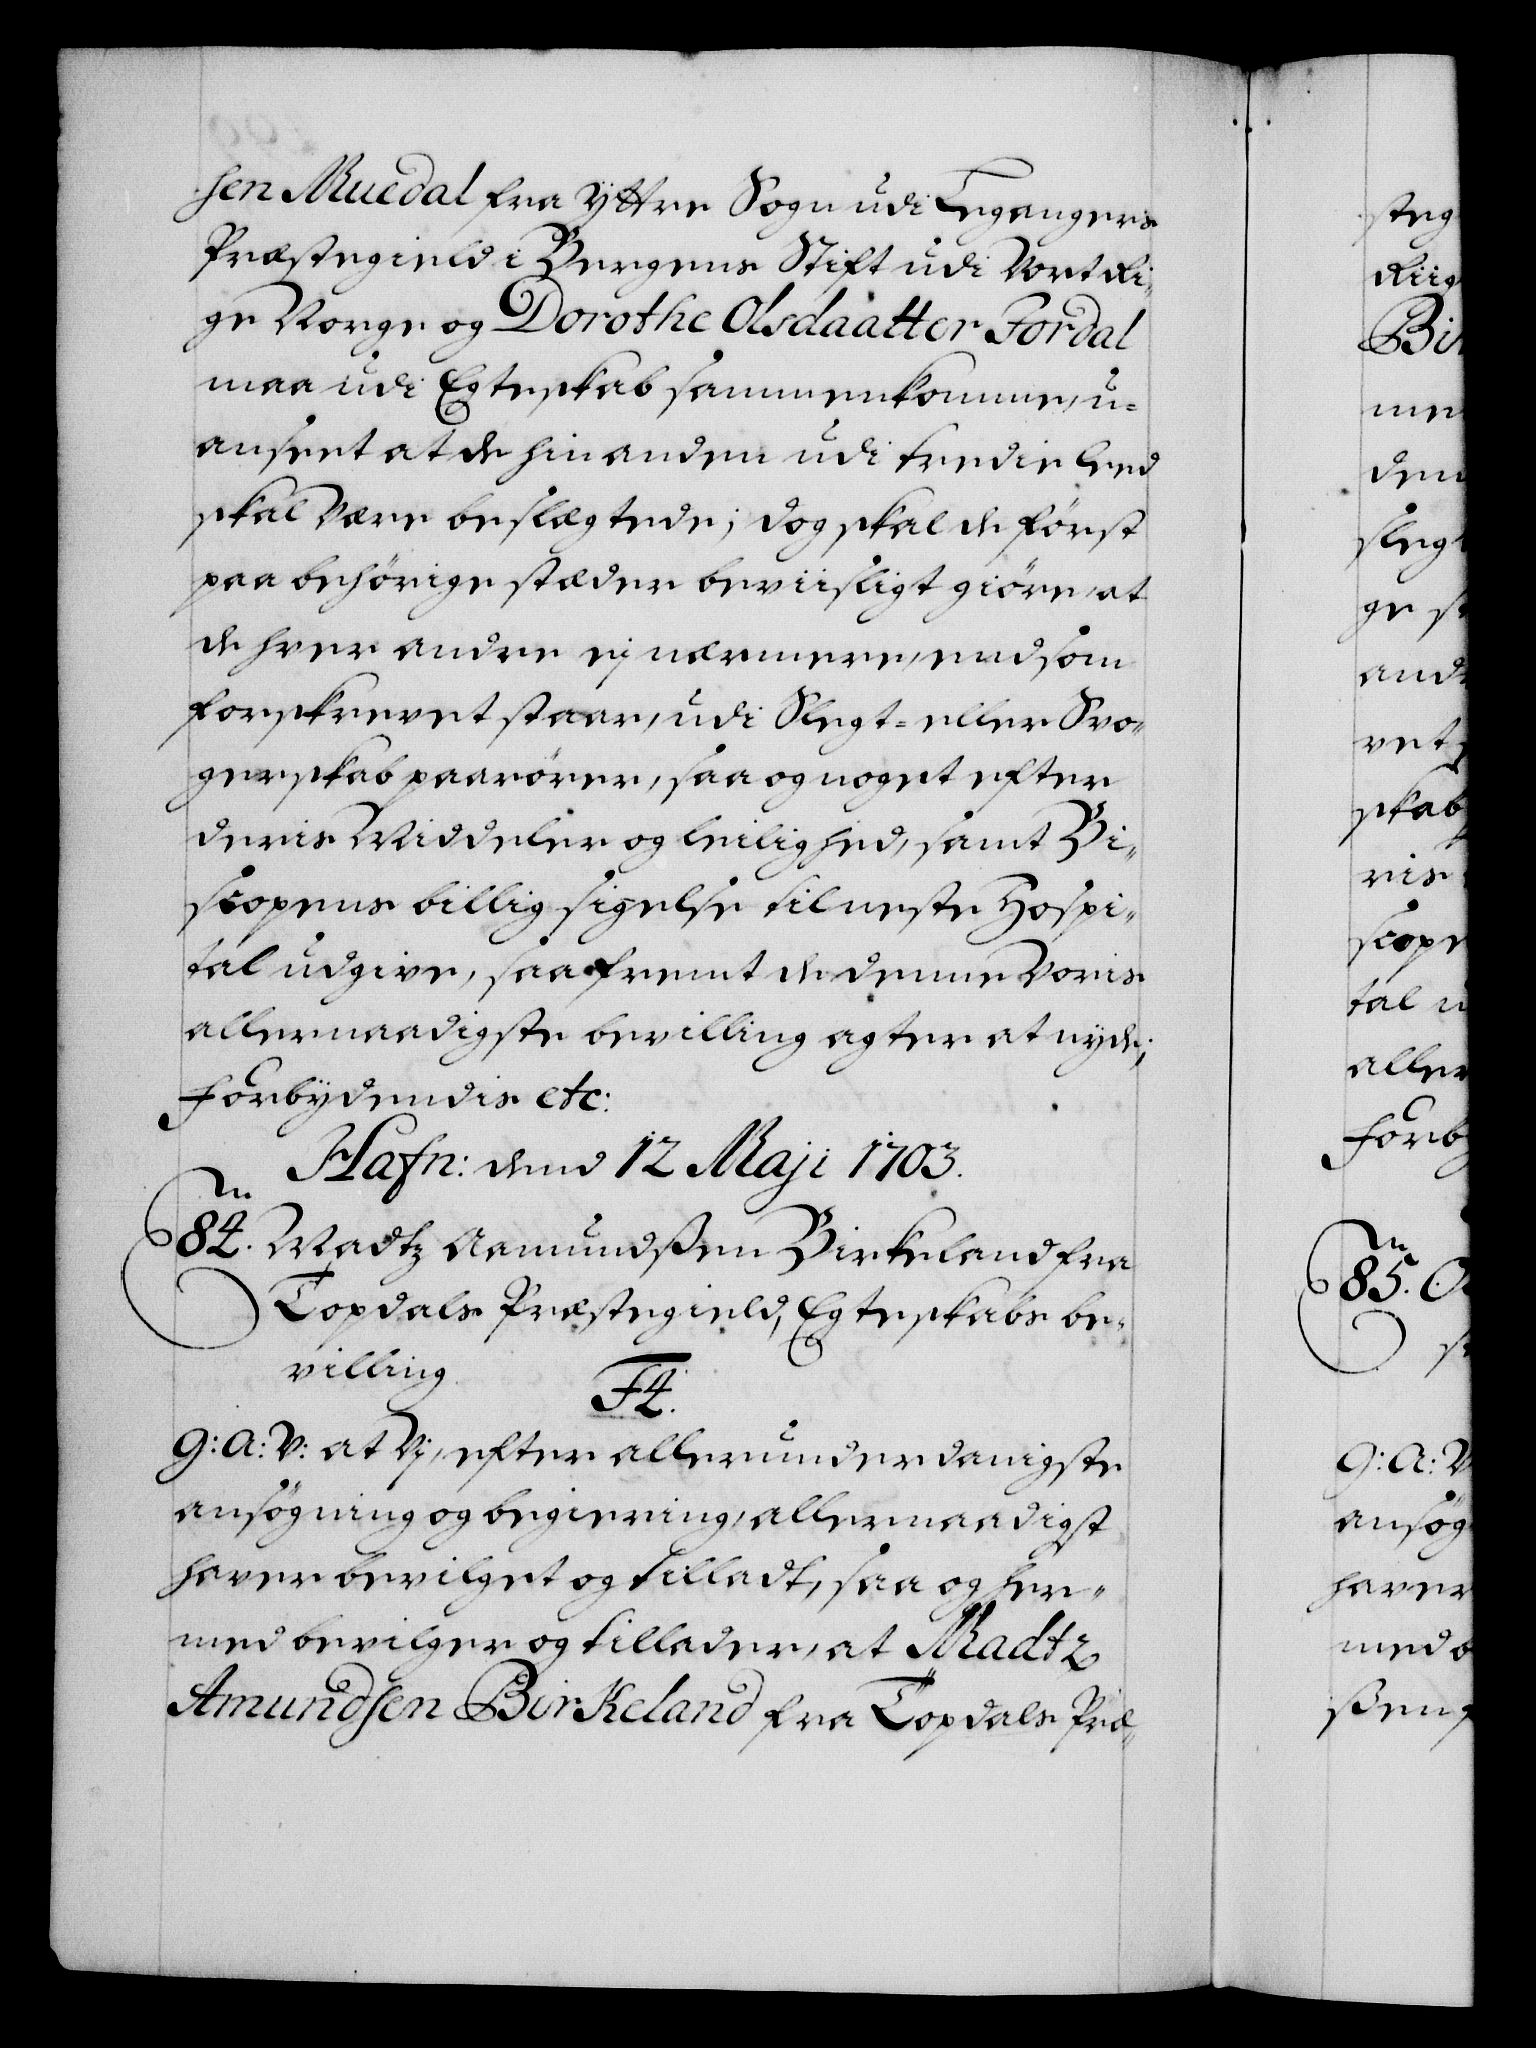 sen Muedal fra Yttre Sogn udi Legangers
Præstegield i Bergens Stift udi Vort Ri-
ge Norge og Dorothe Olsdaatter Fordal
maa udi Egteskab sammenkomme, u-
anseet at de hinanden udi tredie leed
skal være beslægtede; dog skal de først
paa behörige stæder beviisligt giöre, at
de hver andre ej nærmere, end som
forskrevet staar, udi Slegt- eller Svo-
gerskab paarörer, saa og noget efter
deris Middeler og leilighed, samt Bi-
scopens billig sigelse til neste Hospi-
tal udgive, saafremt de denne Voris
allernaadigste bevilling agter at nyde;
Forbydendis etc:
Hafn: dend 12 Maji 1703.
84. Madtz Aamundssen Birkeland fra
Topdals Præstegield, Egteskabs be-
villing.
F4.
G: A: V: at Vj, efter allerunderdanigste
ansögning og begiering, allernaadigst
haver bevilget og tilladt, saa og her-
med bevilger og tillader, at Madtz
Amundsen Birkeland fra Topdals Præ-
steg
Riig
Bir
me
den
slegt
ge st
and
vet
skab
ris
scope
tal u
aller
Forb
85.
G: A: V
ansög
haver
med
ssen